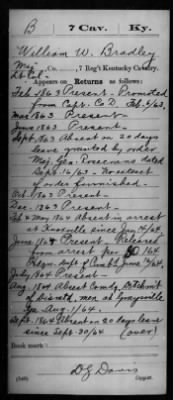 B 7 Cav. Ky.
William W. Bradley
Maj. 7 Reg't Kentucky Cavalry.
Lt Col.
Appears on Returns as follows:
Feb. 1863 Present - Promoted
from Capt. Co D. Feb. 2/63.
Mar 1863 Present
June 1863 Present -
Sept. 1863 Absent on 20 days
leave granted by order
Maj. Gen. Rosecrans dated
Sept. 16/63 -
of order furnished -
Oct. 1863 Present
Dec. 1863 Present
Feb & May 1864 Absent in arrest
at Knoxville since Jan 14/64.
June 1864 Present. Released
from arrest per
June 14/64.
July 1864 Present -
Aug. 1864 Absent Comdg. Detchmt
of dismtd. men at Graysville
Ga. Aug. 1/64.
Sept. 1864 Absent on 20 days leave
since Sept. 30/64 (over)
Book mark:
D G Davis
(546) Copyist.